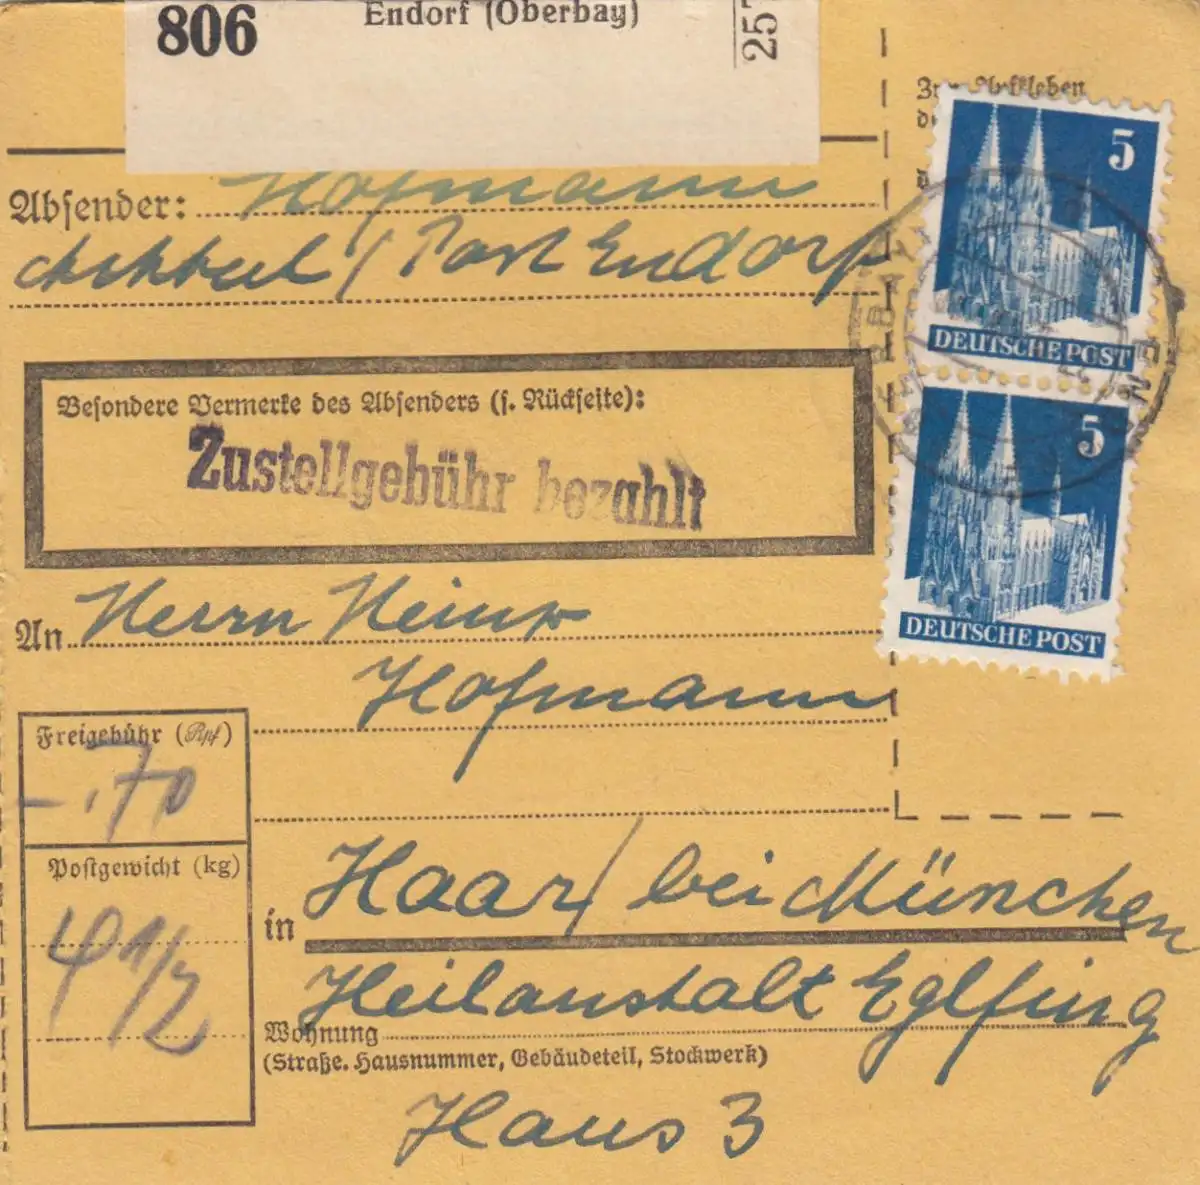 806
Endorf (Oberbay)
25
Zum Aufkleben
Absender: Hofmann
/ Post Endorf
5
DEUTSCHE POST
5
DEUTSCHE POST
Besondere Vermerke des Absenders (s. Rückseite):
Zustellgebühr bezahlt
An Herrn Heinr
Hofmann
Freigebühr (Rpf)
-,70
Postgewicht (kg)
4 1/2
in Haar/ bei München
Heilanstalt Eglfing
Wohnung
(Straße, Hausnummer, Gebäudeteil, Stockwerk)
Haus 3